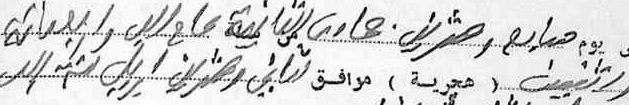 يوم وعشرين جمادى الثانية عام الف واربعمائة
( هجرية ) موافق ثاني وعشرين ابريل سنة الف